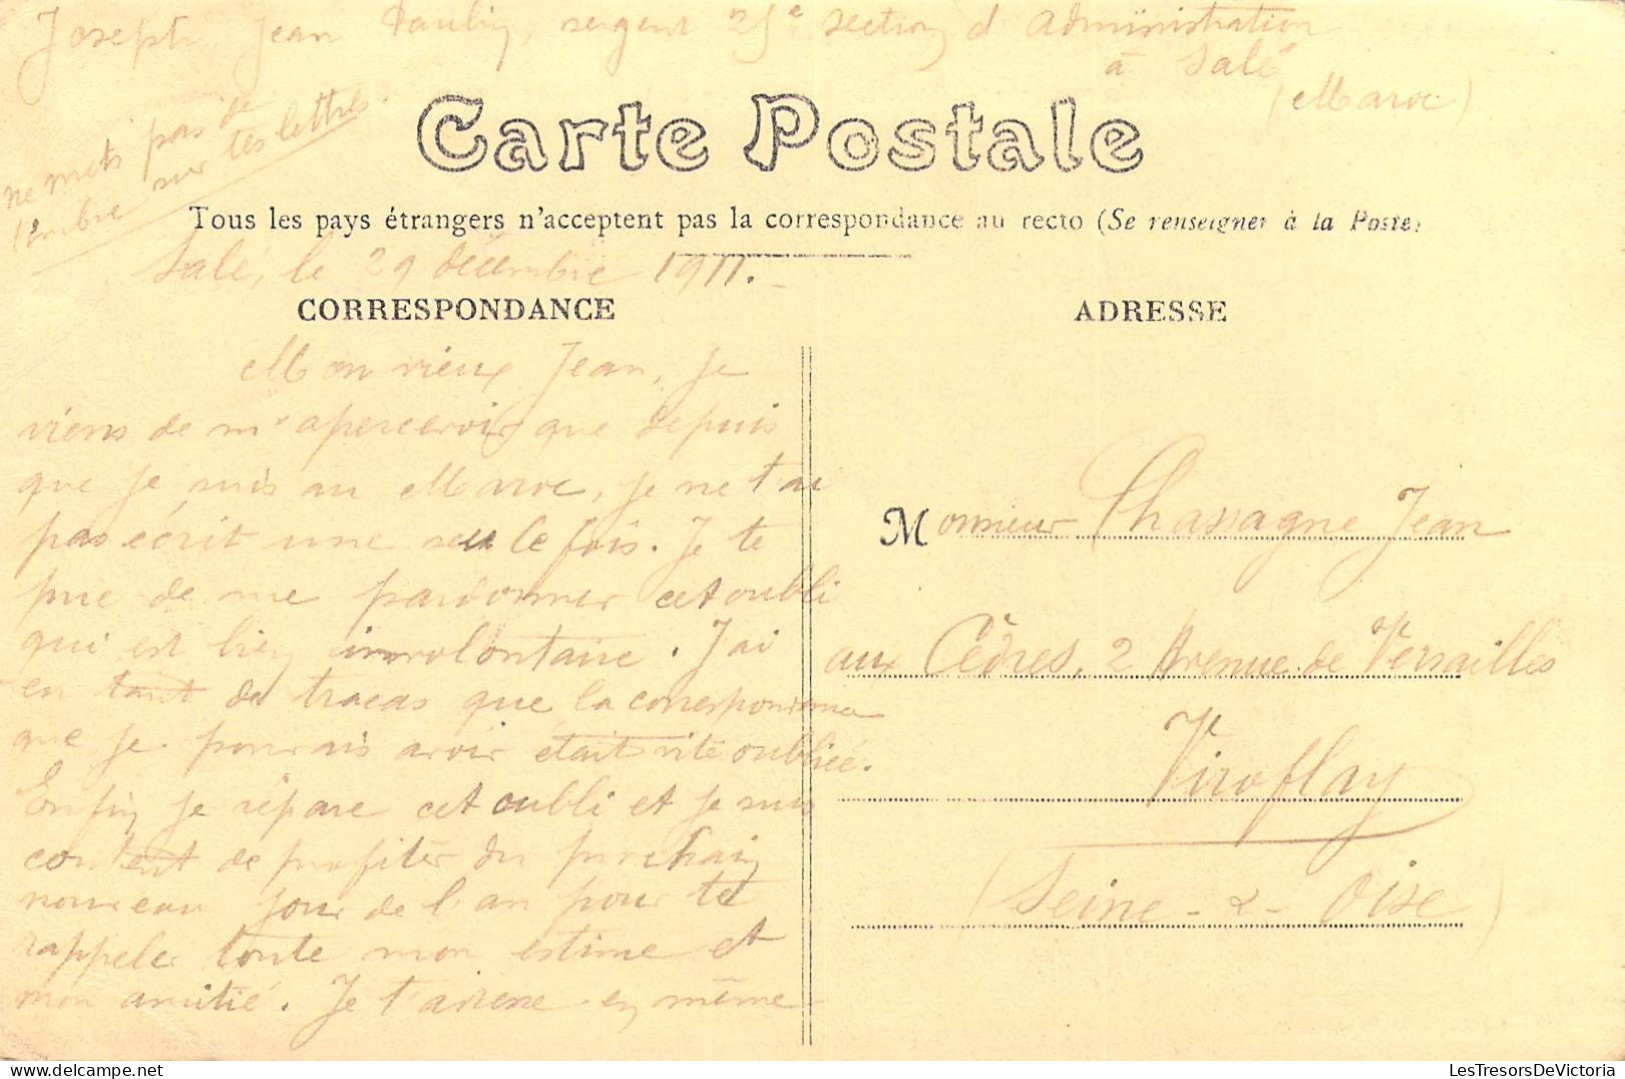 Joseph Jean Paubin, sergent 25e section d'Administration
à Salé
(Maroc)
ne mets pas de
timbre sur tes lettres.
Carte Postale
Tous les pays étrangers n'acceptent pas la correspondance au recto (Se renseigner à la Poste)
Salé, le 29 décembre 1911.
CORRESPONDANCE
ADRESSE
Mon vieux Jean, je
viens de m'apercevoir que depuis
que je suis au Maroc, je ne t'ai
pas écrit une seule fois. Je te
prie de me pardonner cet oubli
qui est bien involontaire. J'ai
eu tant de tracas que la correspondance
que je pourrais avoir était vite oubliée.
Enfin je répare cet oubli et je suis
content de profiter du prochain
nouveau jour de l'an pour te
rappeler toute mon estime et
mon amitié. Je t'adresse en même
Monsieur Chassagne Jean
aux Cèdres, 2 Avenue de Versailles
Viroflay
(Seine-&-Oise)
LesTresorsDeVictoria